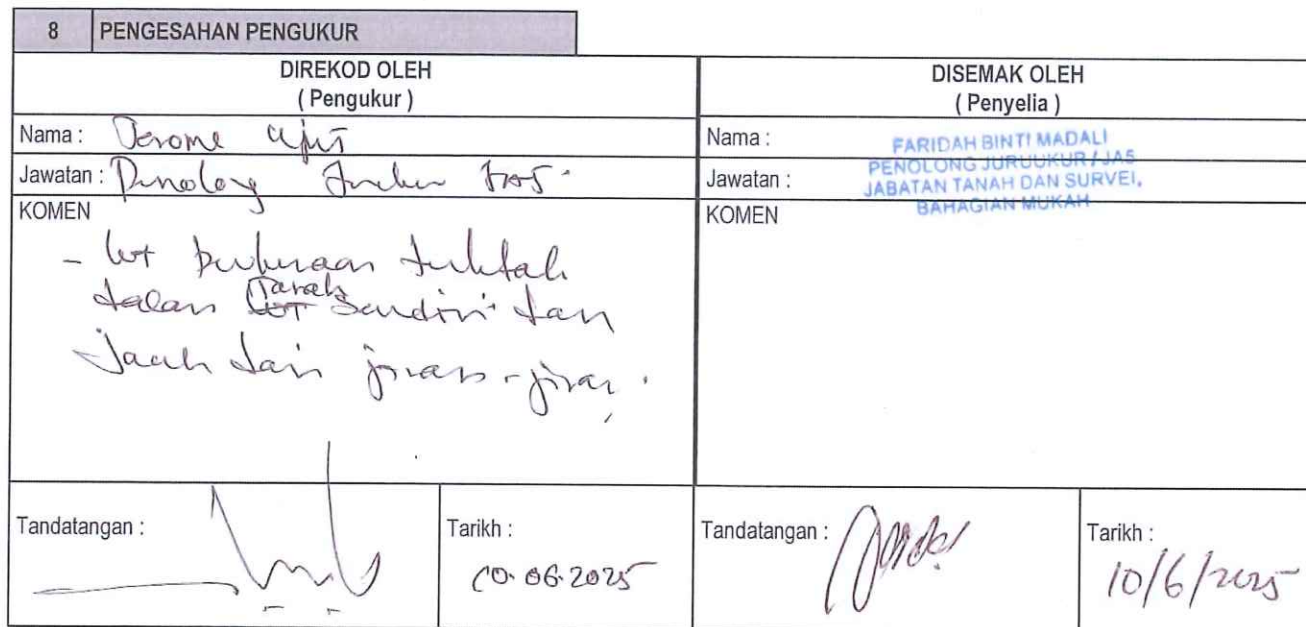 8 PENGESAHAN PENGUKUR
DIREKOD OLEH
( Pengukur )
Nama : Jerome
Jawatan : Penolong JA5.
KOMEN
- lot
dalam Tanah Sendiri dan
jauh dari jiran-jiran.
Tandatangan :
Tarikh :
10.06.2025
DISEMAK OLEH
( Penyelia )
Nama : FARIDAH BINTI MADALI
PENOLONG JURUUKUR / JA5
Jawatan : JABATAN TANAH DAN SURVEI,
BAHAGIAN MUKAH
KOMEN
Tandatangan :
Tarikh :
10/6/2025